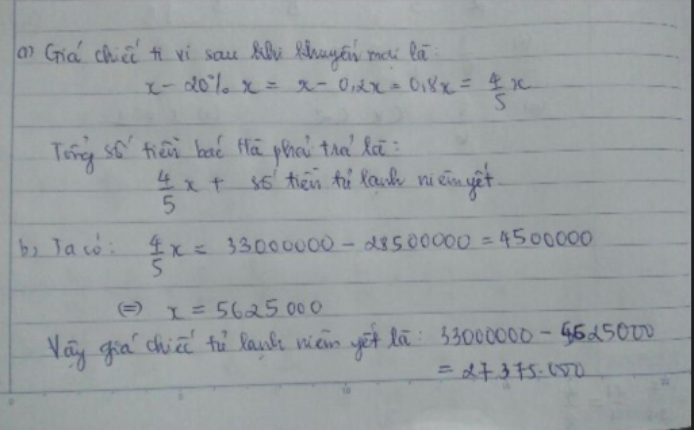 a) Giá chiếc ti vi sau khi khuyến mại là:
x - 20% x = x - 0,2x = 0,8x = 4/5 x
Tổng số tiền bác Hà phải trả là:
4/5 x + số tiền tủ lạnh niêm yết.
b, Ta có: 4/5 x = 33000000 - 28500000 = 4500000
(=) x = 5625000
Vậy giá chiếc tủ lạnh niêm yết là: 33000000 - 5625000
= 27375.000